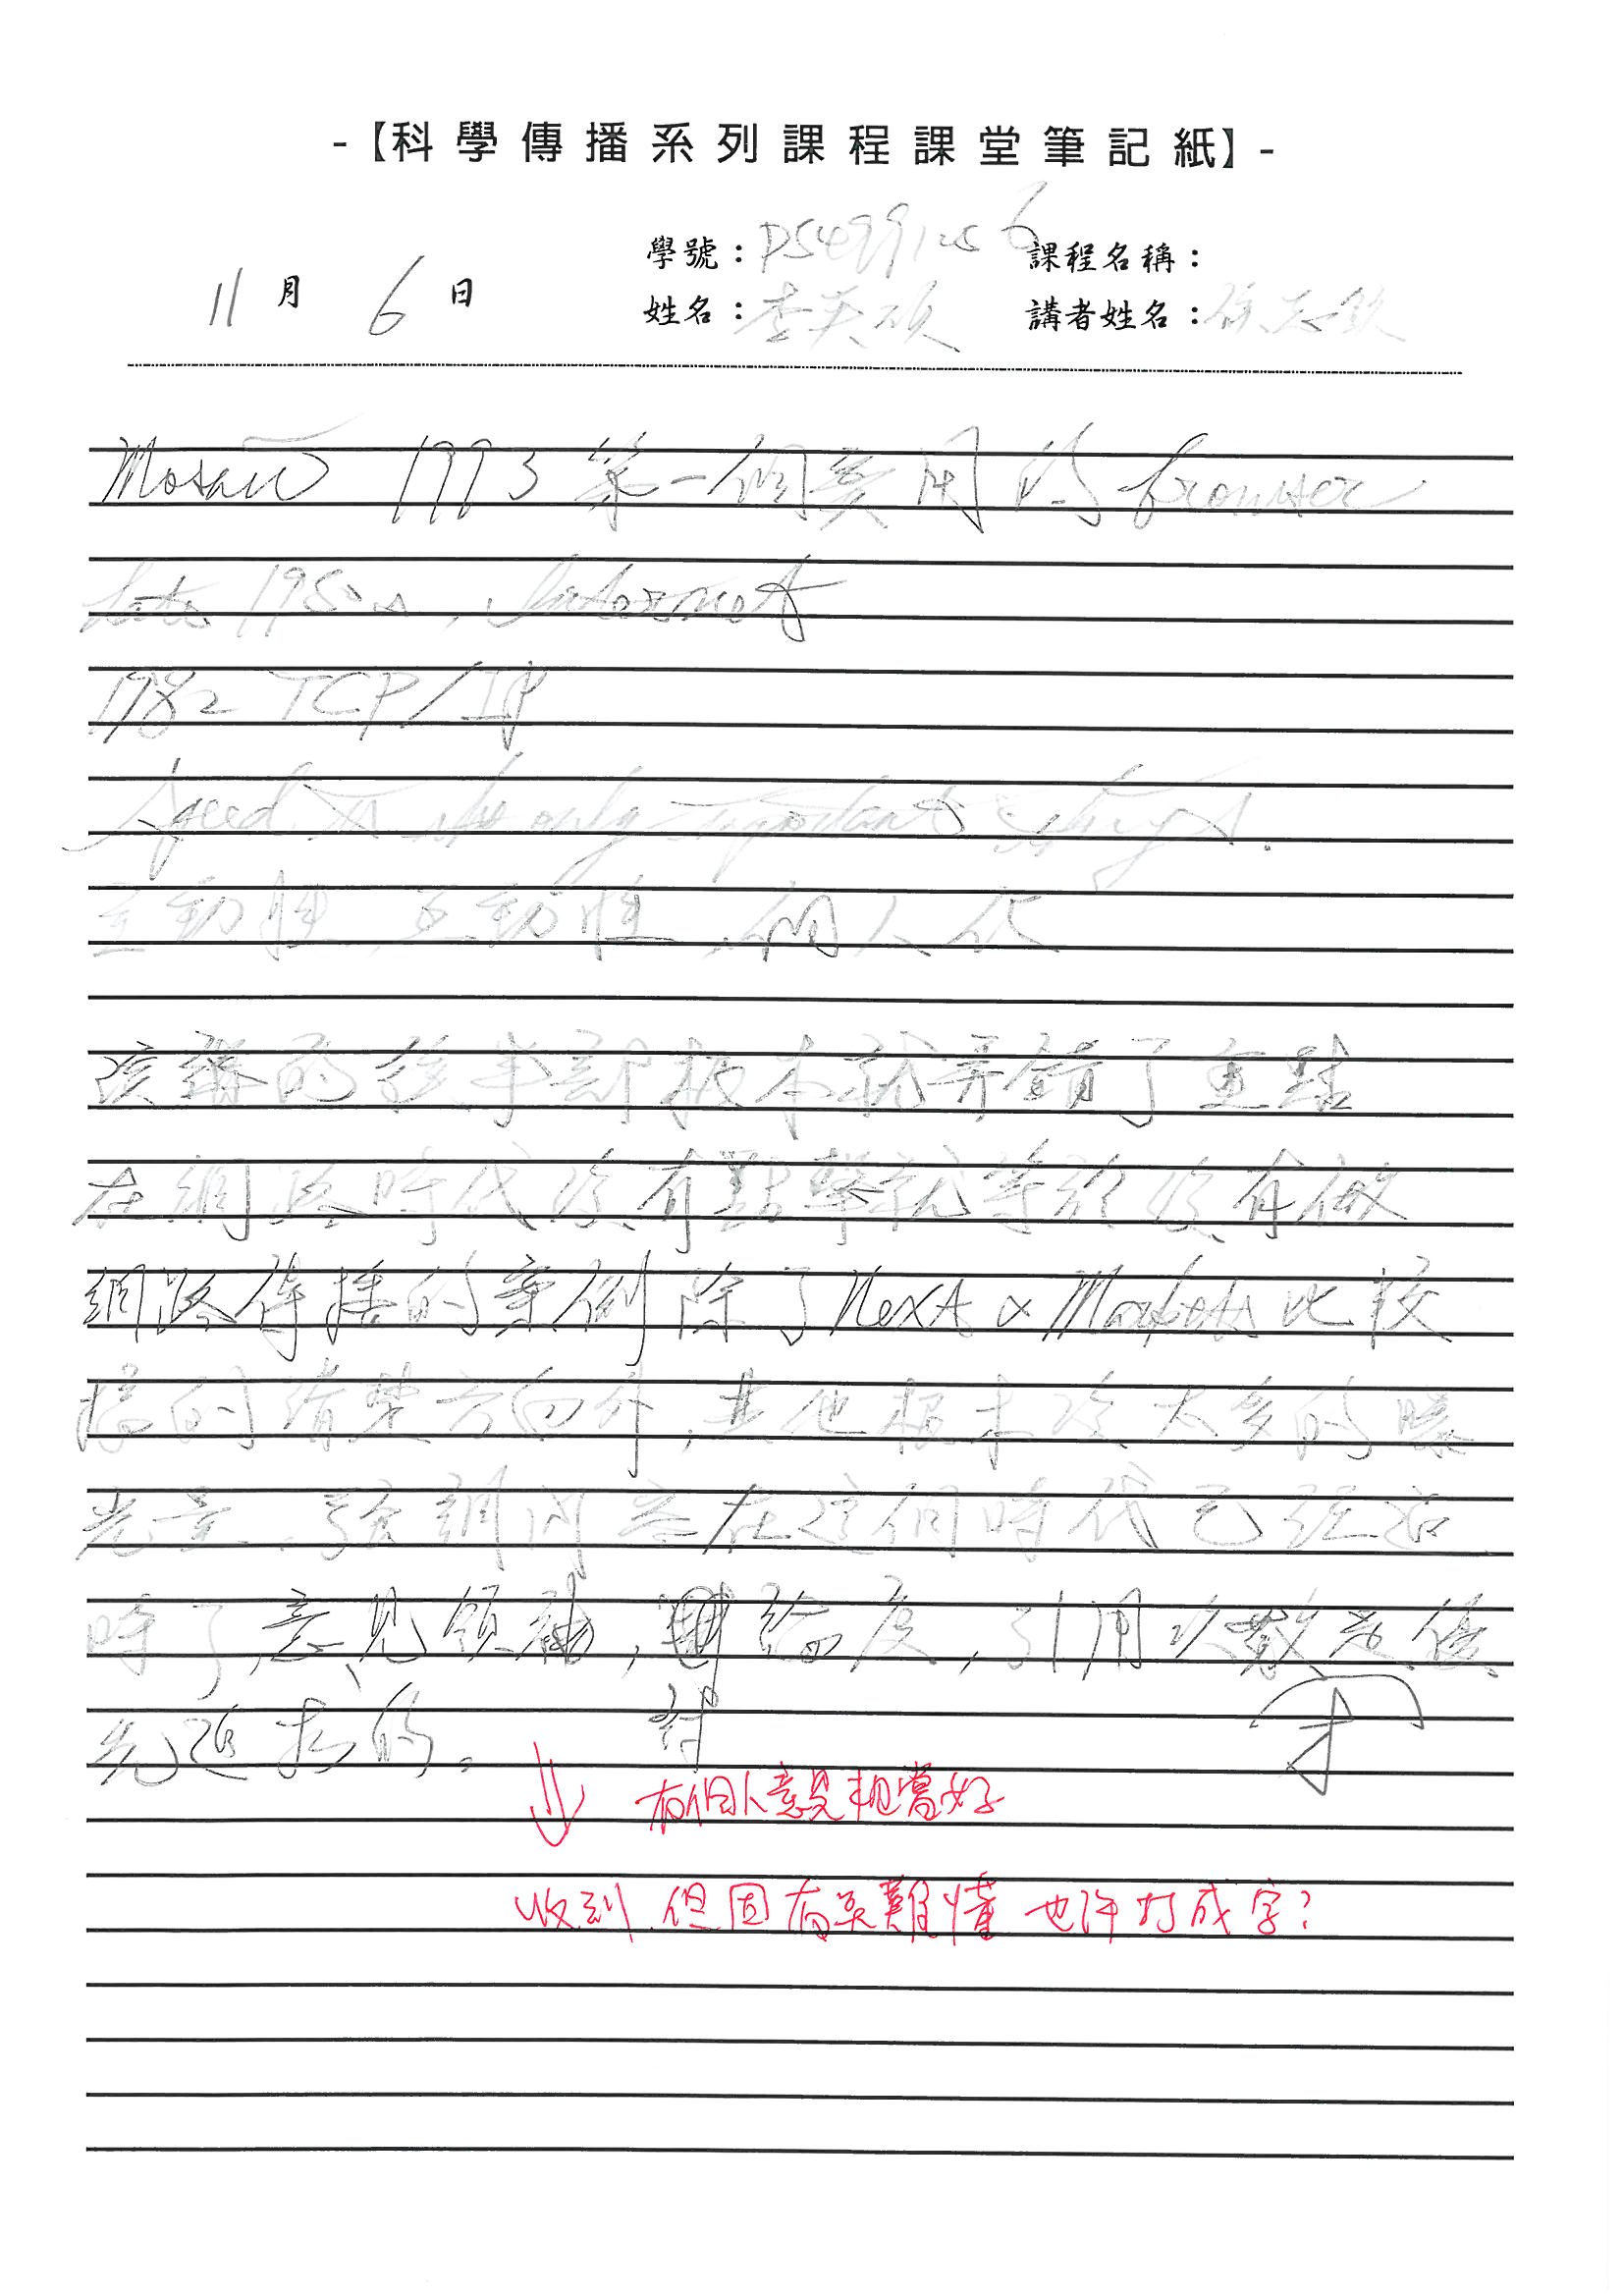 -【科學傳播系列課程課堂筆記紙】-
11月 6日
學號：
課程名稱：
姓名：李英碩
講者姓名：徐志欽
Mosaic 1993 第一個實用的 browser
late 1950s, Internet
1982 TCP/IP
Speed is the only important things.
主動性、互動性、個人化
演講的後半部根本就弄錯了重點
在網路時代沒有點擊就等於沒有做
網路傳播的案例除了Next & Markets比較
樣的清楚方向外，其他根本沒太多的曝
光量、強調內容在這個時代已經過
時了，意見領袖，討論度，引用次數才是優
先追求的。
有個人意見 相當好
收到 但因 有些難懂 也許打成字?